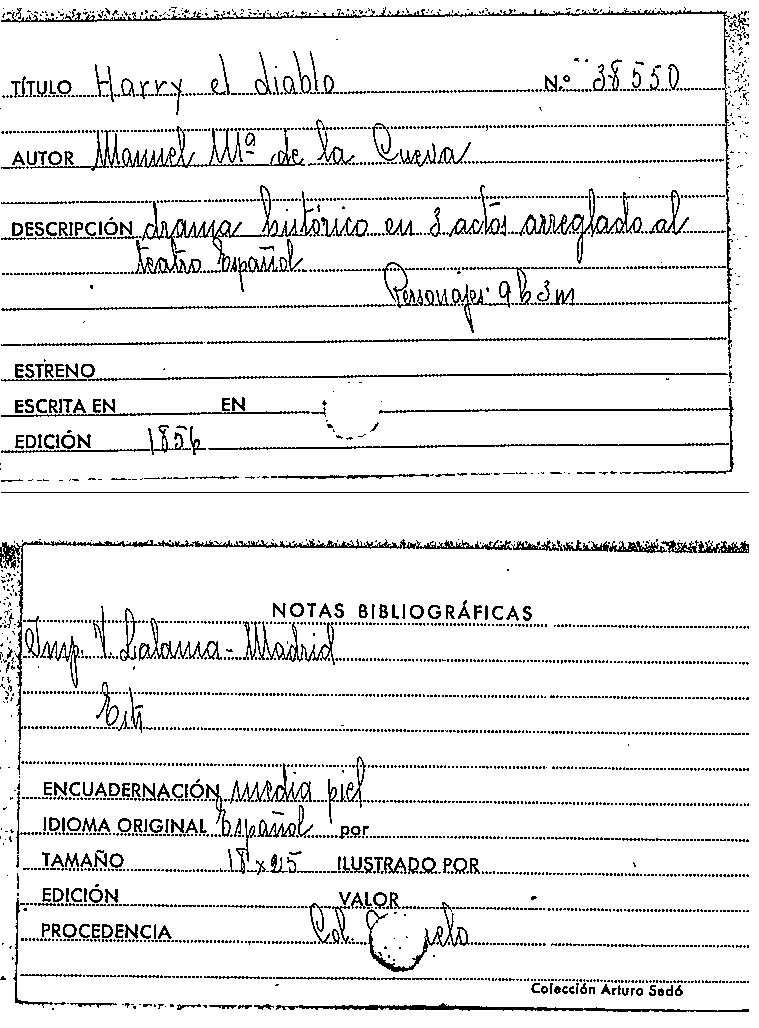 TÍTULO Harry el diablo N.º 38550
AUTOR Manuel Mª de la Cueva
DESCRIPCIÓN drama histórico en 3 actos arreglado al
teatro Español
Personajes: 9 h 3 m
ESTRENO
ESCRITA EN EN
EDICIÓN 1856
NOTAS BIBLIOGRÁFICAS
Imp. V. Lalama - Madrid
ENCUADERNACIÓN media piel
IDIOMA ORIGINAL Español por
TAMAÑO 18 x 25 ILUSTRADO POR
EDICIÓN VALOR
PROCEDENCIA Col.
Colección Arturo Sedó